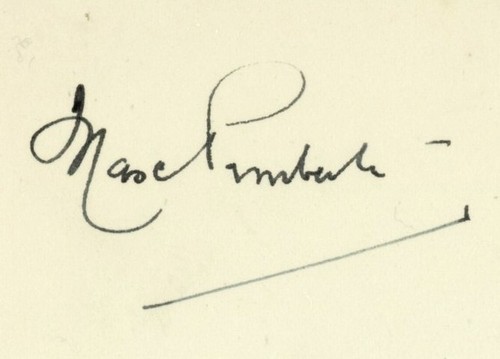 Max Pemberton